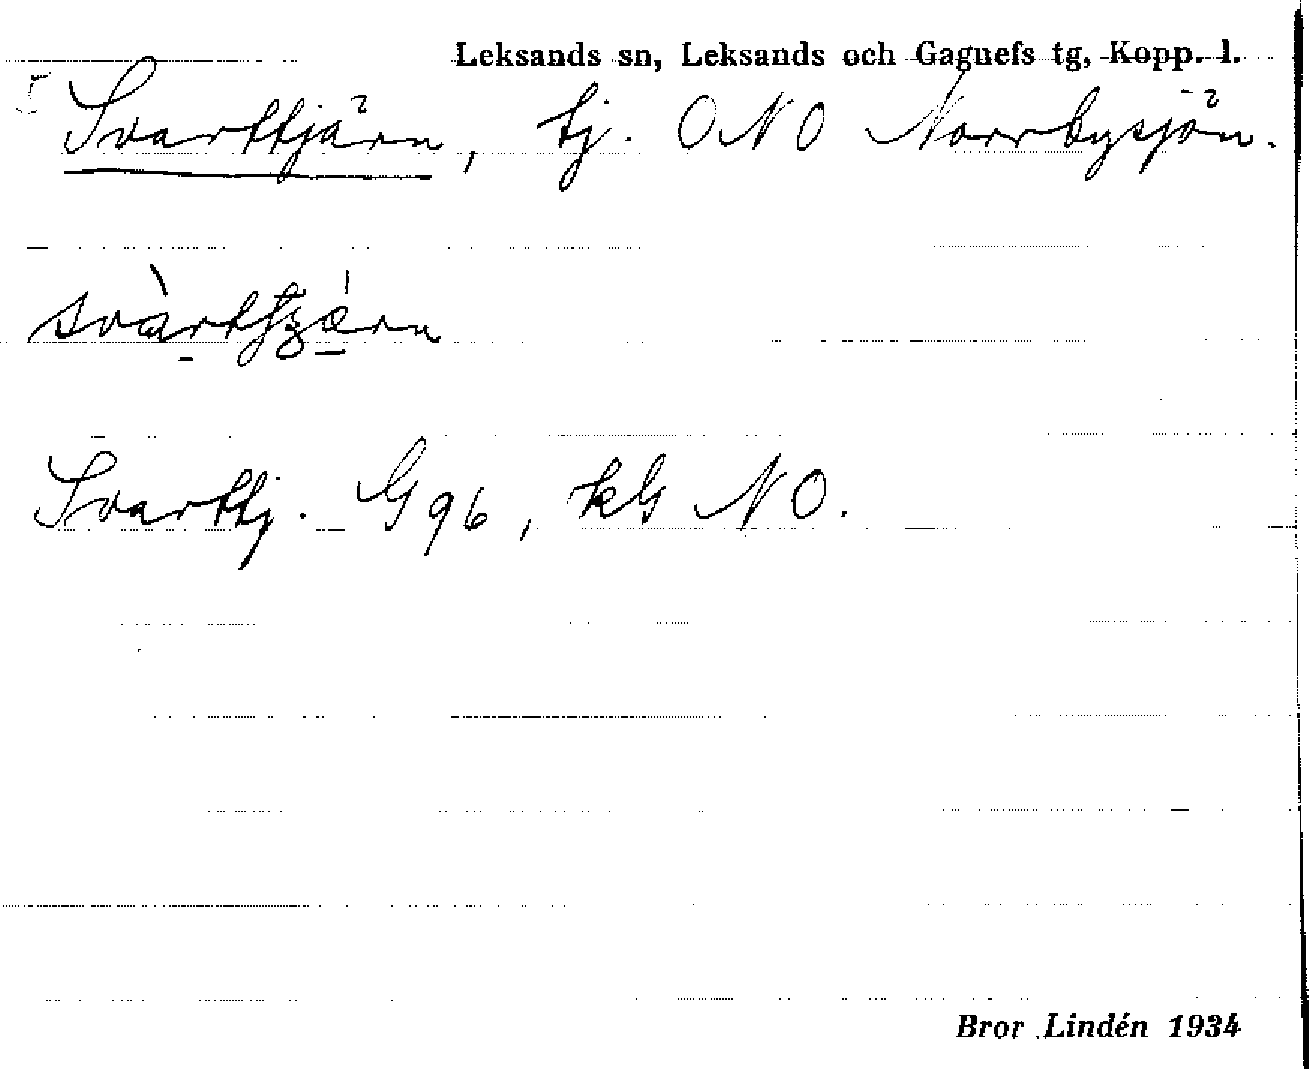 Leksands sn, Leksands och Gagnefs tg, Kopp. l.
Svarttjärn, tj. ONO Norrbysjön.
Svarttj. G 96, kG NO.
Bror Lindén 1934